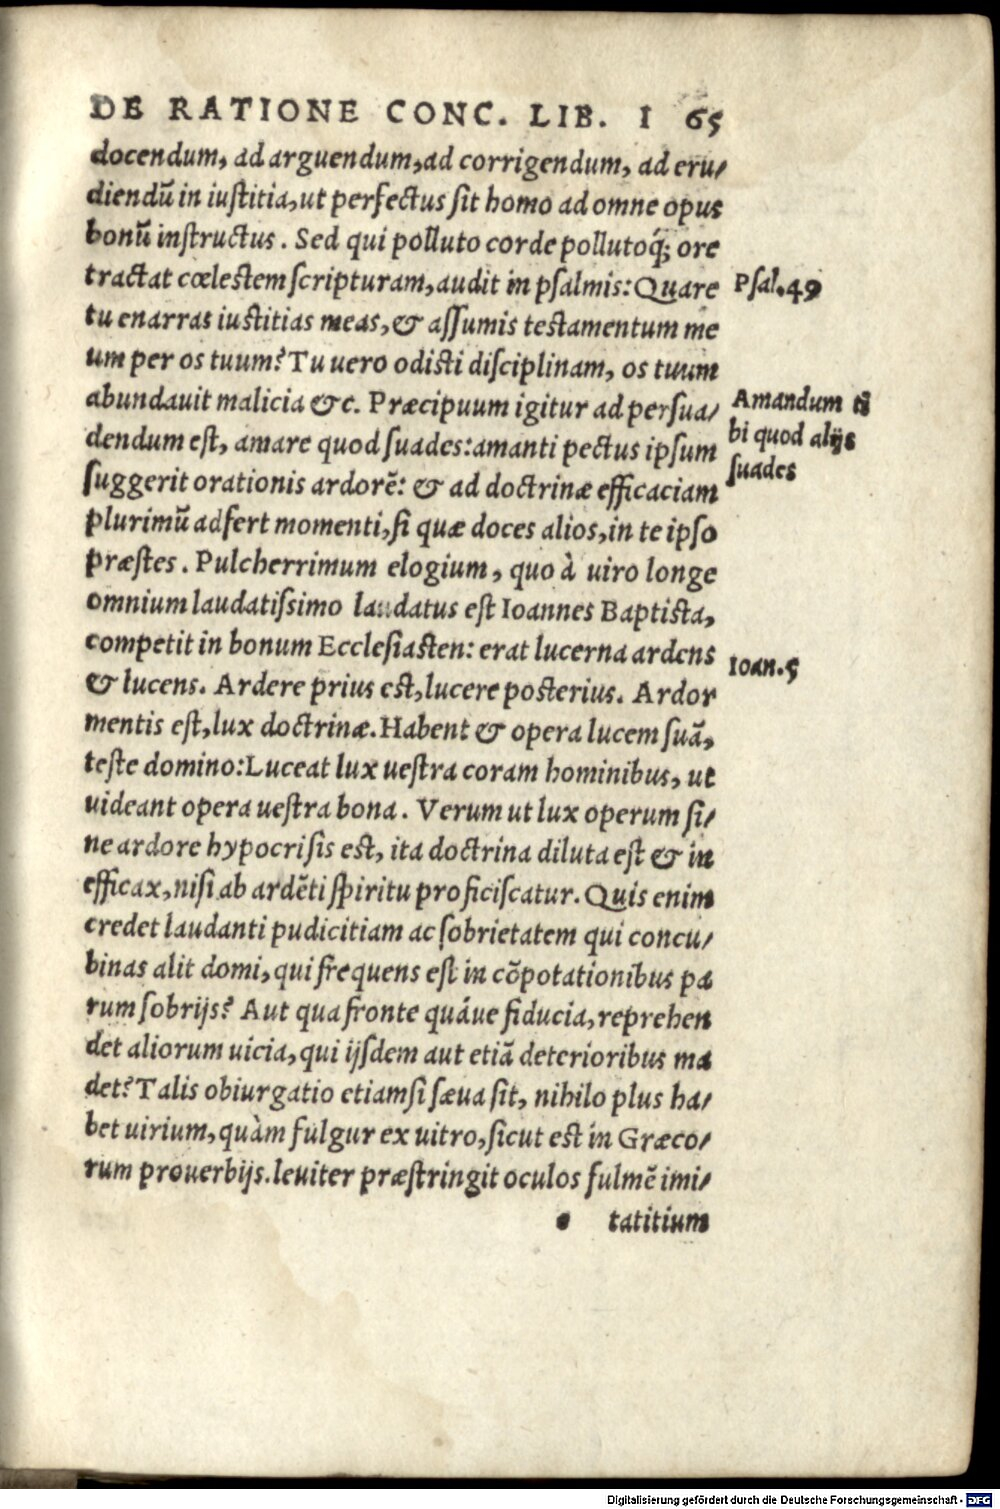 DE RATIONE CONC. LIB. I 65
docendum, ad arguendum, ad corrigendum, ad eru/
diendũ in iustitia, ut perfectus sit homo ad omne opus
bonũ instructus. Sed qui polluto corde pollutoq́; ore
tractat cœlestem scripturam, audit in psalmis: Quare
Psal.49
tu enarras iustitias meas, & assumis testamentum me
um per os tuum? Tu uero odisti disciplinam, os tuum
abundauit malicia &c. Præcipuum igitur ad persua/
Amandum
dendum est, amare quod suades: amanti pectus ipsum
bi quod alijs
suggerit orationis ardorẽ: & ad doctrinæ efficaciam
suades
plurimũ adfert momenti, si quæ doces alios, in te ipso
præstes. Pulcherrimum elogium, quo à uiro longe
omnium laudatissimo laudatus est Ioannes Baptista,
competit in bonum Ecclesiasten: erat lucerna ardens
Ioan.5
& lucens. Ardere prius est, lucere posterius. Ardor
mentis est, lux doctrinæ. Habent & opera lucem suã,
teste domino: Luceat lux uestra coram hominibus, ut
uideant opera uestra bona. Verum ut lux operum si/
ne ardore hypocrisis est, ita doctrina diluta est & in
efficax, nisi ab ardẽti spiritu proficiscatur. Quis enim
credet laudanti pudicitiam ac sobrietatem qui concu/
binas alit domi, qui frequens est in cõpotationibus pa
rum sobrijs? Aut qua fronte quáue fiducia, reprehen
det aliorum uicia, qui ijsdem aut etiã deterioribus ma
det? Talis obiurgatio etiamsi sæua sit, nihilo plus ha/
bet uirium, quàm fulgur ex uitro, sicut est in Græco/
rum prouerbijs. leuiter præstringit oculos fulmẽ imi/
tatitium
Digitalisierung gefördert durch die Deutsche Forschungsgemeinschaft - DFG